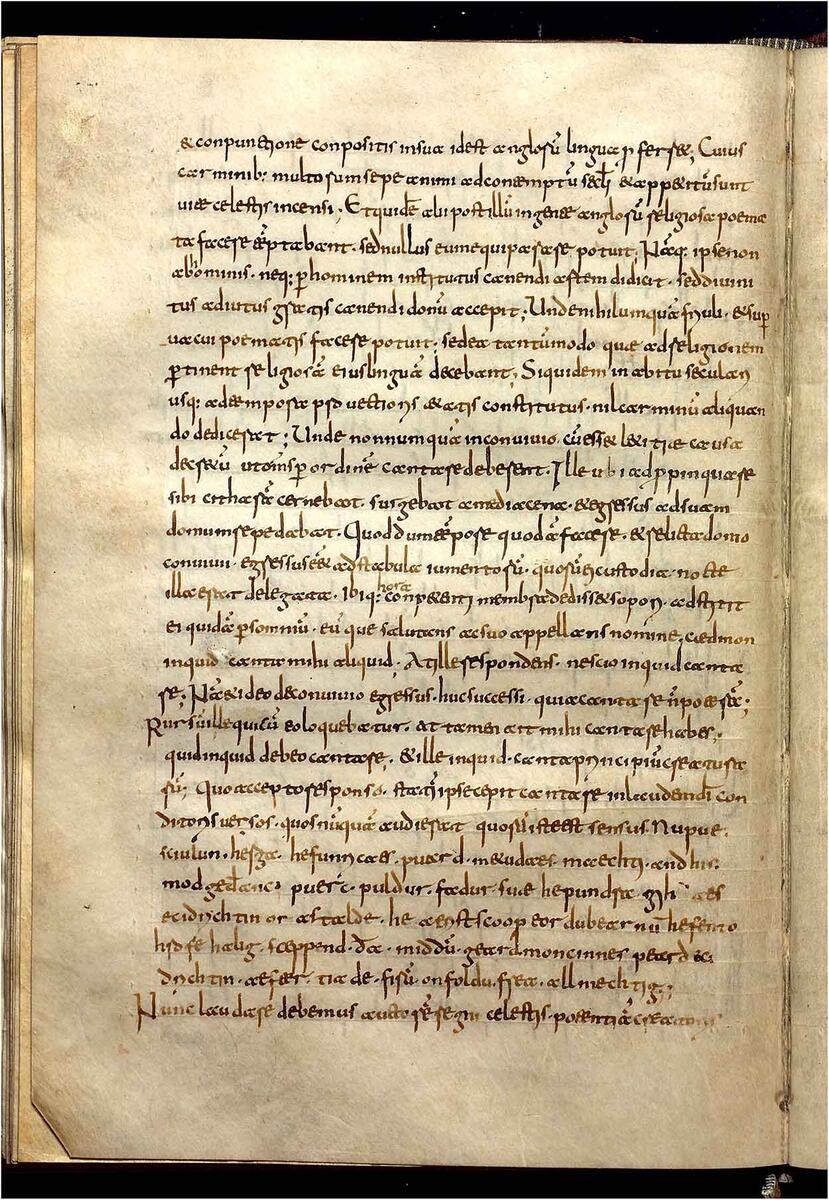 & conpunctione conpositis in sua id est anglorū lingua pferret; Cuius
carminib: multorum sepe animi ad contemptū secli & appetitū sunt
vitae celestis incensi; Et quidē alii post illū in gente anglorū religiosa poema
ta facere tēptabant. sed nullus eum equiparare potuit; Nāq: ipse non
ab hominis. neq: p hominem institutus canendi artem didicit. sed divini
tus adiutus gratis canendi donū accepit; Unde nihil umquā frivoli. & sup
vacui poematis facere potuit; sed ea tantūmodo quae ad religionem
ptinent religiosā eius linguā decebant; Siquidem in abitu seculari
usq: ad tempora pvectioris aetatis constitutus. nil carminū aliquan
do didicerat; Unde nonnumquā in convivio cū esset laetitiae causa
decretū ut oms p ordinē cantare deberent. Ille ubi adppinquare
sibi citharā cernebat. surgebat a media cena. & egressus ad suam
domum sepedabat. Quod dum tēpore quodā faceret. & relicta domo
convivii. egressus eēt ad stabula iumentorū. quorū ei custodia nocte
illa erat delegata. ibiq: hora conpetenti membra dedisset sopori. adstitit
ei quidā p somniū. eūque salutans ac suo appellans nomine. caedmon
inquid canta mihi aliquid. At ille respondens. nescio inquid canta
re; Nā & ideo de convivio egressus. huc successi. quia cantare n̄ poterā;
Rursū ille qui cū eo loquebatur. at tamen ait mihi cantare habes;
quid inquid debeo cantare. & ille inquid. canta principiū creatura
rū; Quo accepto responso. statī ipse cepit cantare in laudem dī con
ditoris versos. quos nūquā audierat quorū iste est sensus. Nu pue.
sciulun. herga. hefunricaes. puard. metudaes. maechti. and his
modgedanc. puerc. puldur. fadur. sue he pundra gihuaes
ecidrichtin or astalde. he aerist scoop eordubearnū hefen to
hrofe halig. sceppend. da. middū. geard moncinnes peard eci
drichtin. aefter. tiade. firū. on foldu. frea. allmechtig;
Nunc laudare debemus auctorē regni celestis. potentiā creatoris